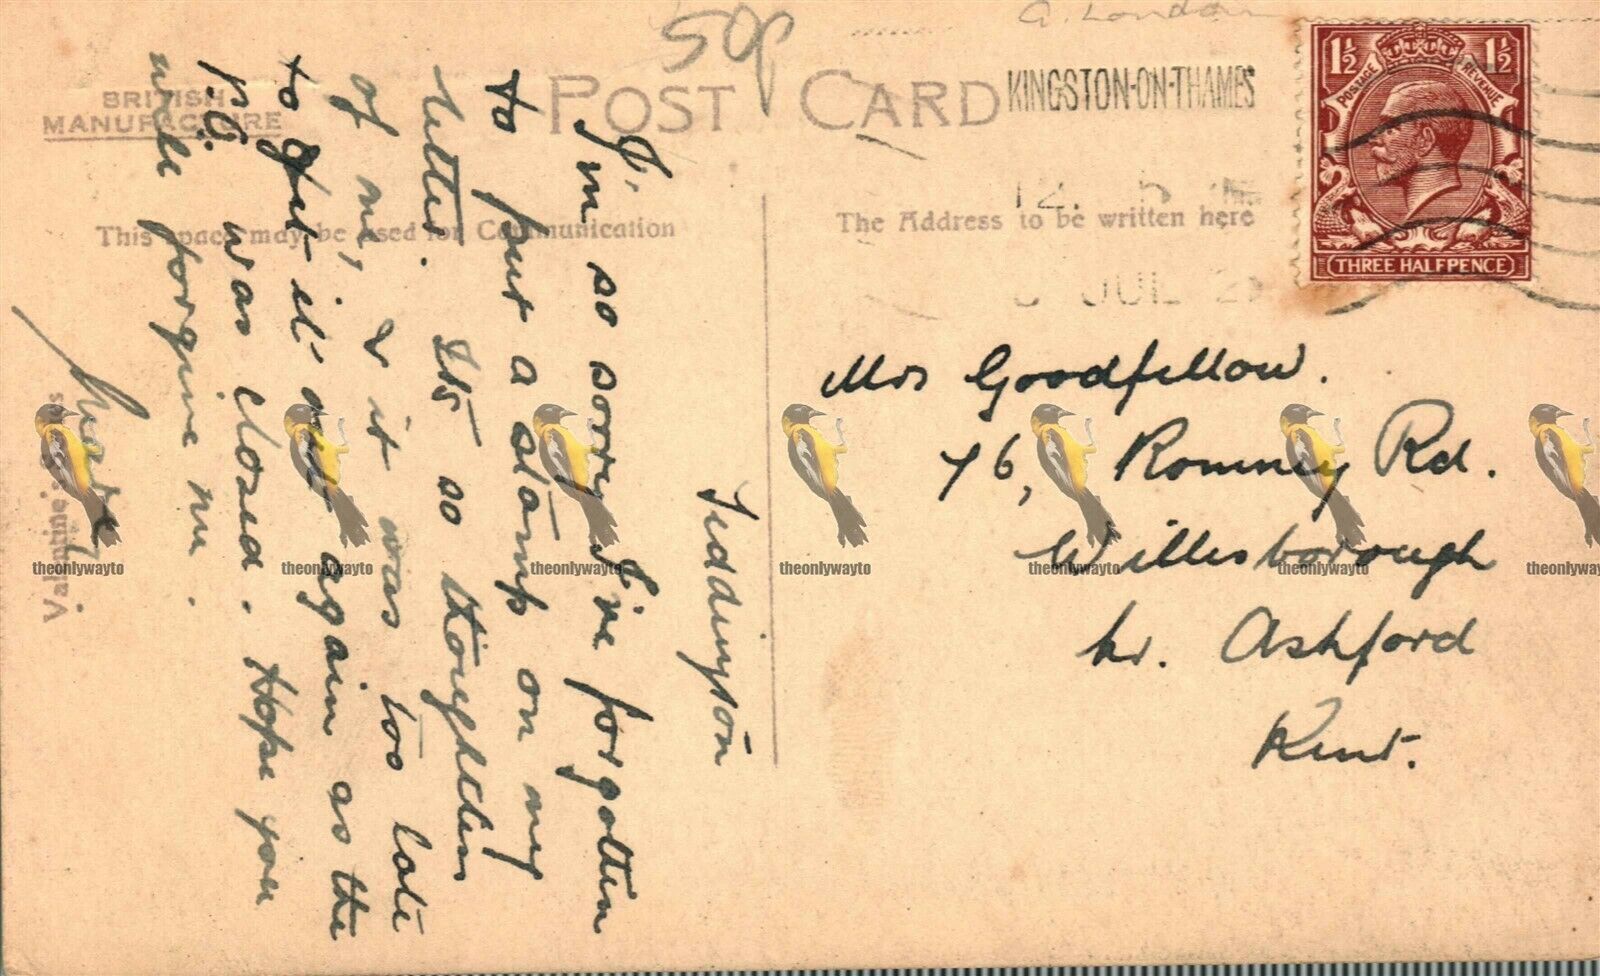 50p
a. London
BRITISH
MANUFACTURE
POST CARD
KINGSTON-ON-THAMES
12.
JUL 2
1½ 1½
POSTAGE REVENUE
THREE HALFPENCE
This space may be used for Communication
The Address to be written here
Valentine's Series
Teddington
I'm so sorry I've forgotten
to put a stamp on my
letter. It's so thoughtless
of me, & it was too late
to get it out again as the
P.O. was closed. Hope you
will forgive me.
Mrs Goodfellow.
76, Romney Rd.
Willesborough
Nr. Ashford
Kent.
theonlywayto theonlywayto theonlywayto theonlywayto theonlywayto theonlywayto theonlywayto